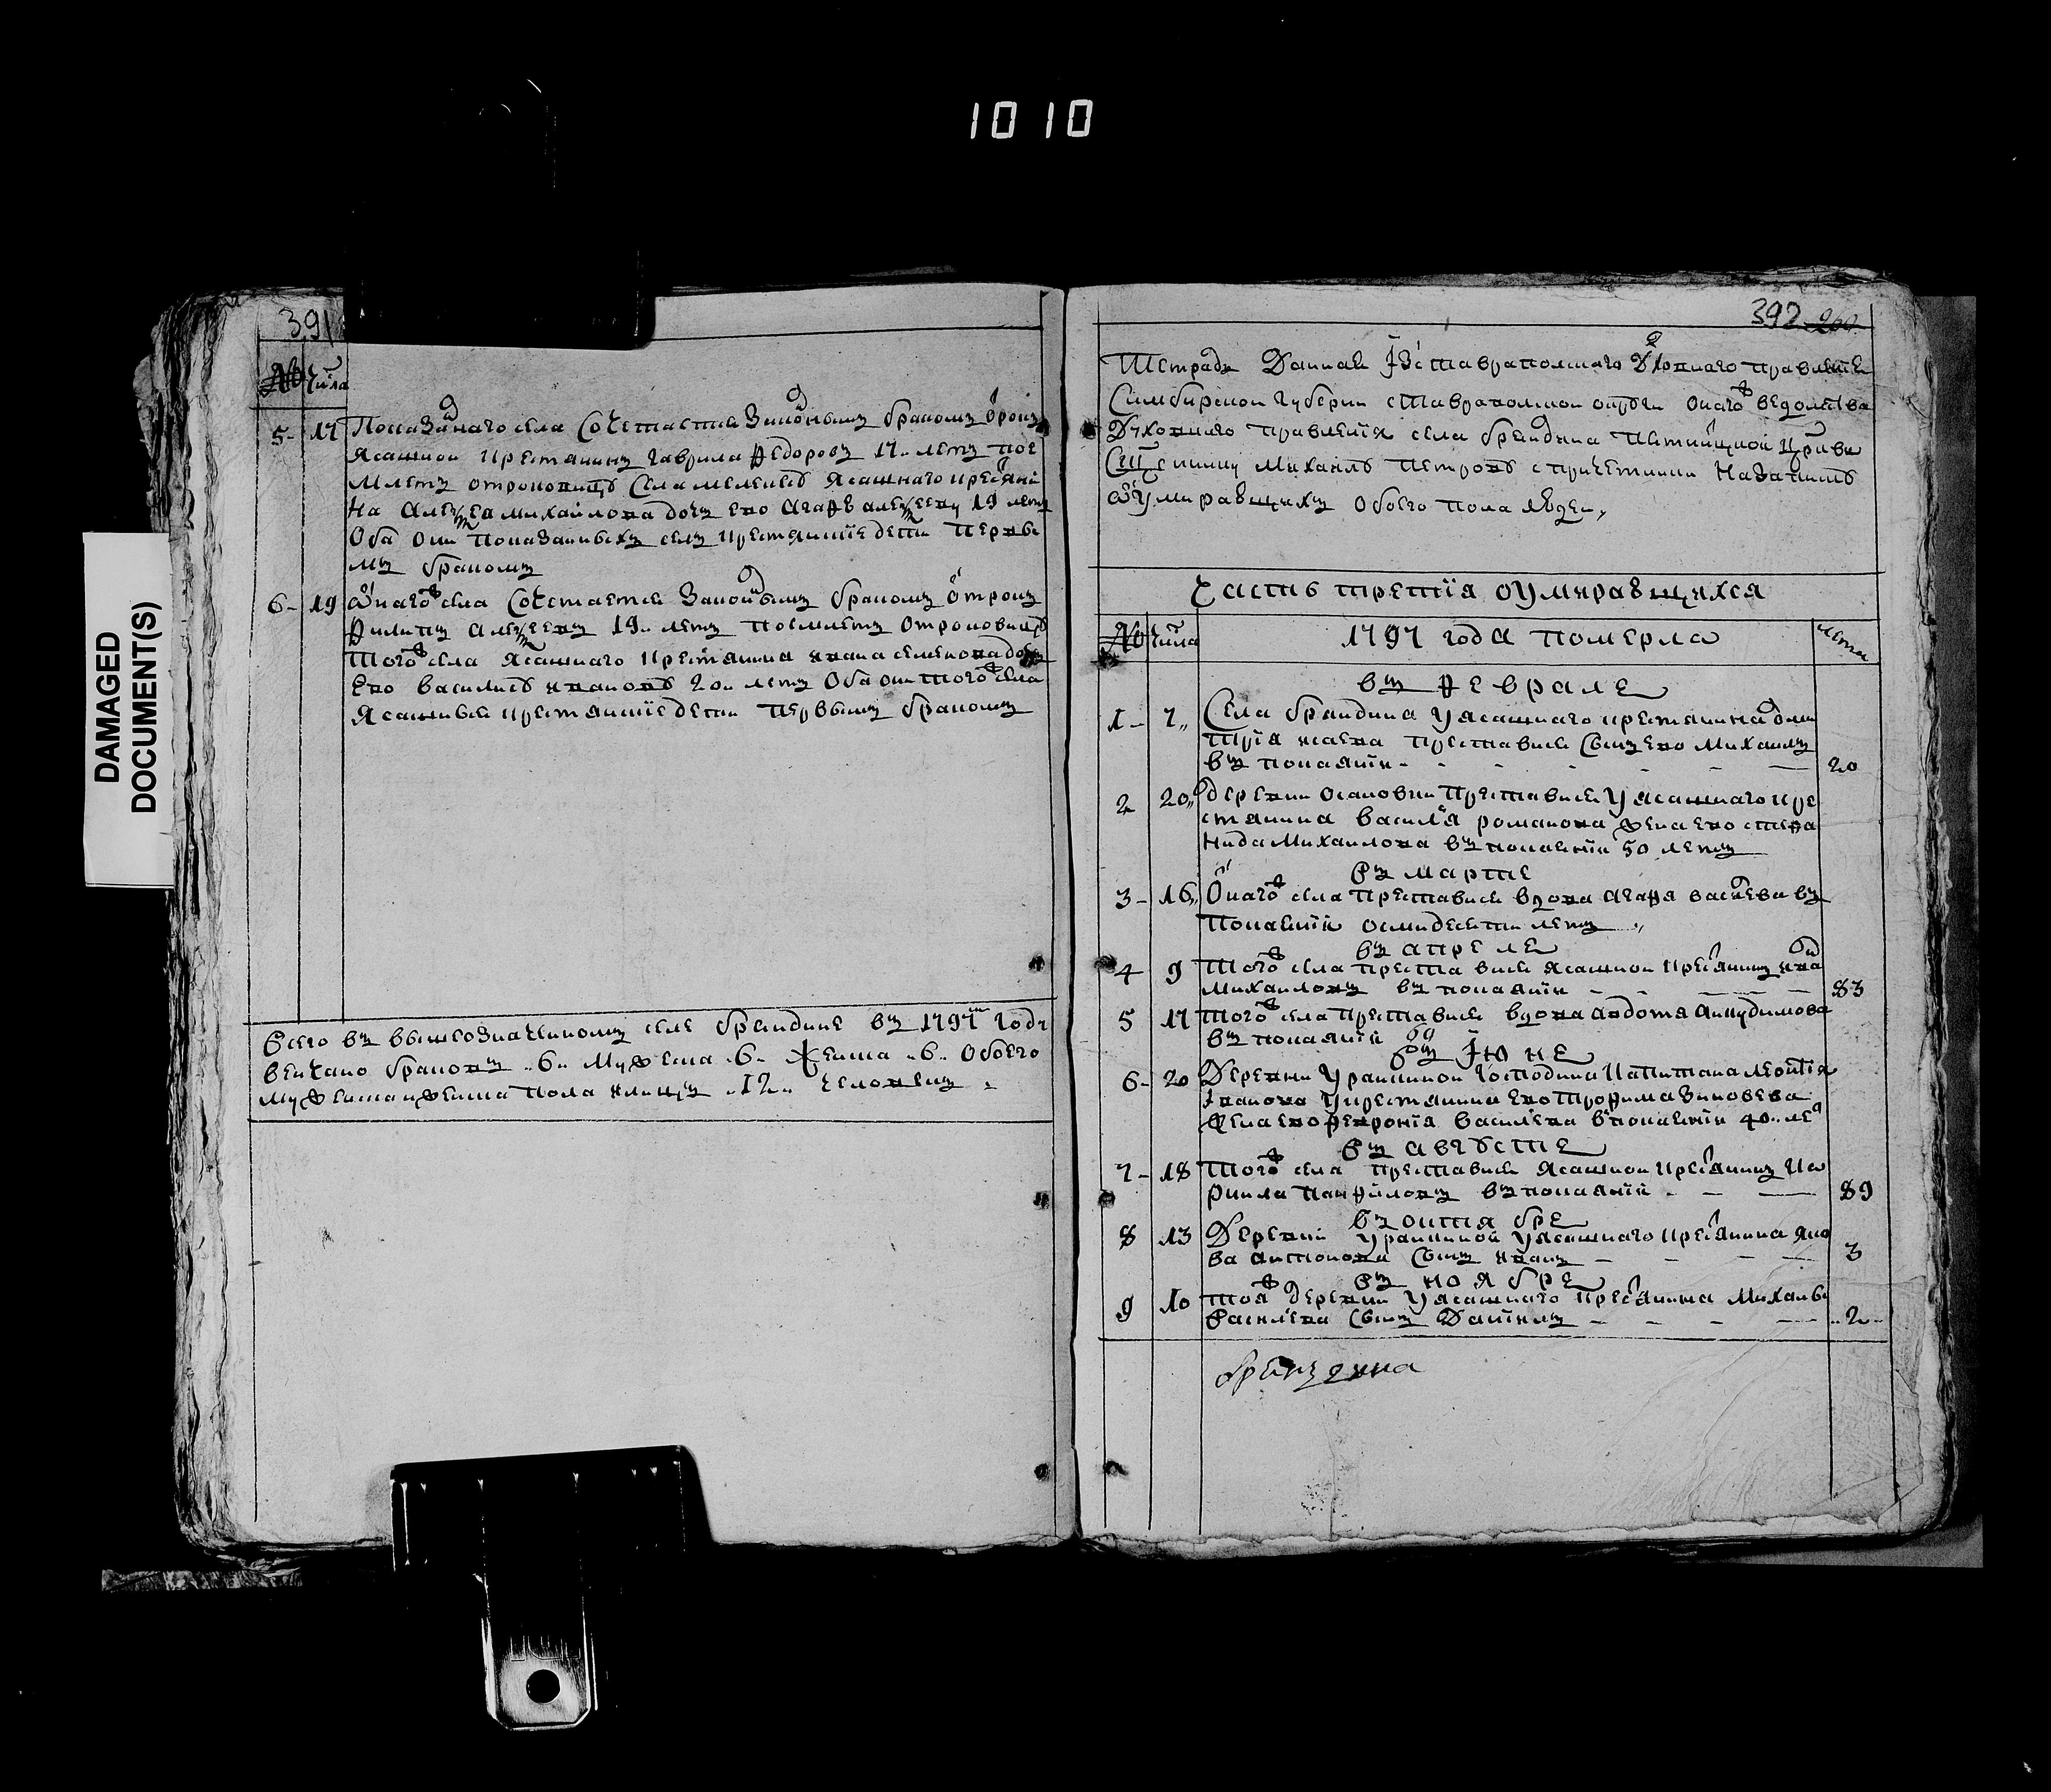 1010
DAMAGED
DOCUMENT(S)
391
№ числа
5 - 17 Показаннаго села сочетается законнымъ бракомъ отрокъ
ясашной крестьянинъ гаврила федоровъ 17 летъ пое
млетъ отроковицу села ясашного кресьяни
на алексея михаилова дочь ево агафью алексееву 19 летъ
оба они показанныхъ селъ крестьянские дети первы
мъ бракомъ
6 - 19 онагожъ села сочетается законнымъ бракомъ отрокъ
филипъ алексеевъ 19 летъ поемлетъ отроковицу
тогожъ села ясашнаго крестьянина ивана семенова дочь
ево василису иванову 20 летъ оба они тогожъ села
ясашныи крестьянские дети первымъ бракомъ
Всего въ вышеозначенномъ селе брандине въ 1797м году
венчано браковъ 6 мужеска 6 женска 6 обоего
мужескаиженска пола лицъ 12 человекъ
392 260
Тетрадь Данная Iзставрапольского Духовнаго правления
Симбирской губерни ставрапольской округи онагожъ ведомства
Духовнаго правления села брандина церкви
Священнику Михаилу петрову спричетники Назапись
умиравшихъ обоего пола людеи
Часть третїя оумиравщихся
№ числа 1797 года померла лета
въ феврале
1 - 7 Села брандина уясашнаго крестьянина дми
трїя исаева преставися сынъ ево михаилъ
въ покаянїи 20
2 20 деревни осановки преставися уясашнаго кре
стьянина василья романова жена ево стефа
нида михаилова въ покаянїи 50 летъ
въ марте
3 - 16 Онагожъ села преставися вдова агафя васильева въ
покаянїи осмидесяти летъ
въ апреле
4 9 Тогожъ села преставися ясашнои кресьянинъ иванъ
михаиловъ въ покаянїи 83
5 17 Тогожъ села преставися вдова авдотя анкудинова
въ покаянїи 69
въ Iюне
6 - 20 Деревни уранкинои господина капитана леонтїя
Iванова укрестьянина ево трофима зиновева
жена ево феврония василева впокаянїи 40 летъ
въ августе
7 - 18 Тогожъ села преставися ясашнои кресьянинъ ки
рила панфиловъ въ покаянїи 89
въ октябре
8 13 Деревни уранкинои уясашнаго кресьянина яко
ва антонова сынъ иванъ 3
въ ноябре
9 10 тояжъ деревни уясашнаго кресьянина михаилы
василева сынъ Данїилъ 2